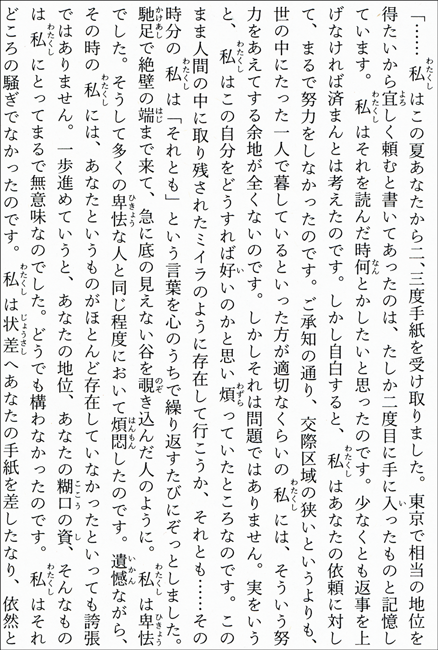 「……私はこの夏あなたから二、三度手紙を受け取りました。東京で相当の地位を
得たいから宜しく頼むと書いてあったのは、たしか二度目に手に入ったものと記憶し
ています。私はそれを読んだ時何とかしたいと思ったのです。少なくとも返事を上
げなければ済まんとは考えたのです。しかし自白すると、私はあなたの依頼に対し
て、まるで努力をしなかったのです。ご承知の通り、交際区域の狭いというよりも、
世の中にたった一人で暮しているといった方が適切なくらいの私には、そういう努
力をあえてする余地が全くないのです。しかしそれは問題ではありません。実をいう
と、私はこの自分をどうすれば好いのかと思い煩っていたところなのです。この
まま人間の中に取り残されたミイラのように存在して行こうか、それとも……その
時分の私は「それとも」という言葉を心のうちで繰り返すたびにぞっとしました。
馳足で絶壁の端まで来て、急に底の見えない谷を覗き込んだ人のように。私は卑怯
でした。そうして多くの卑怯な人と同じ程度において煩悶したのです。遺憾ながら、
その時の私には、あなたというものがほとんど存在していなかったといっても誇張
ではありません。一歩進めていうと、あなたの地位、あなたの糊口の資、そんなもの
は私にとってまるで無意味なのでした。どうでも構わなかったのです。私はそれ
どころの騒ぎでなかったのです。私は状差へあなたの手紙を差したなり、依然と